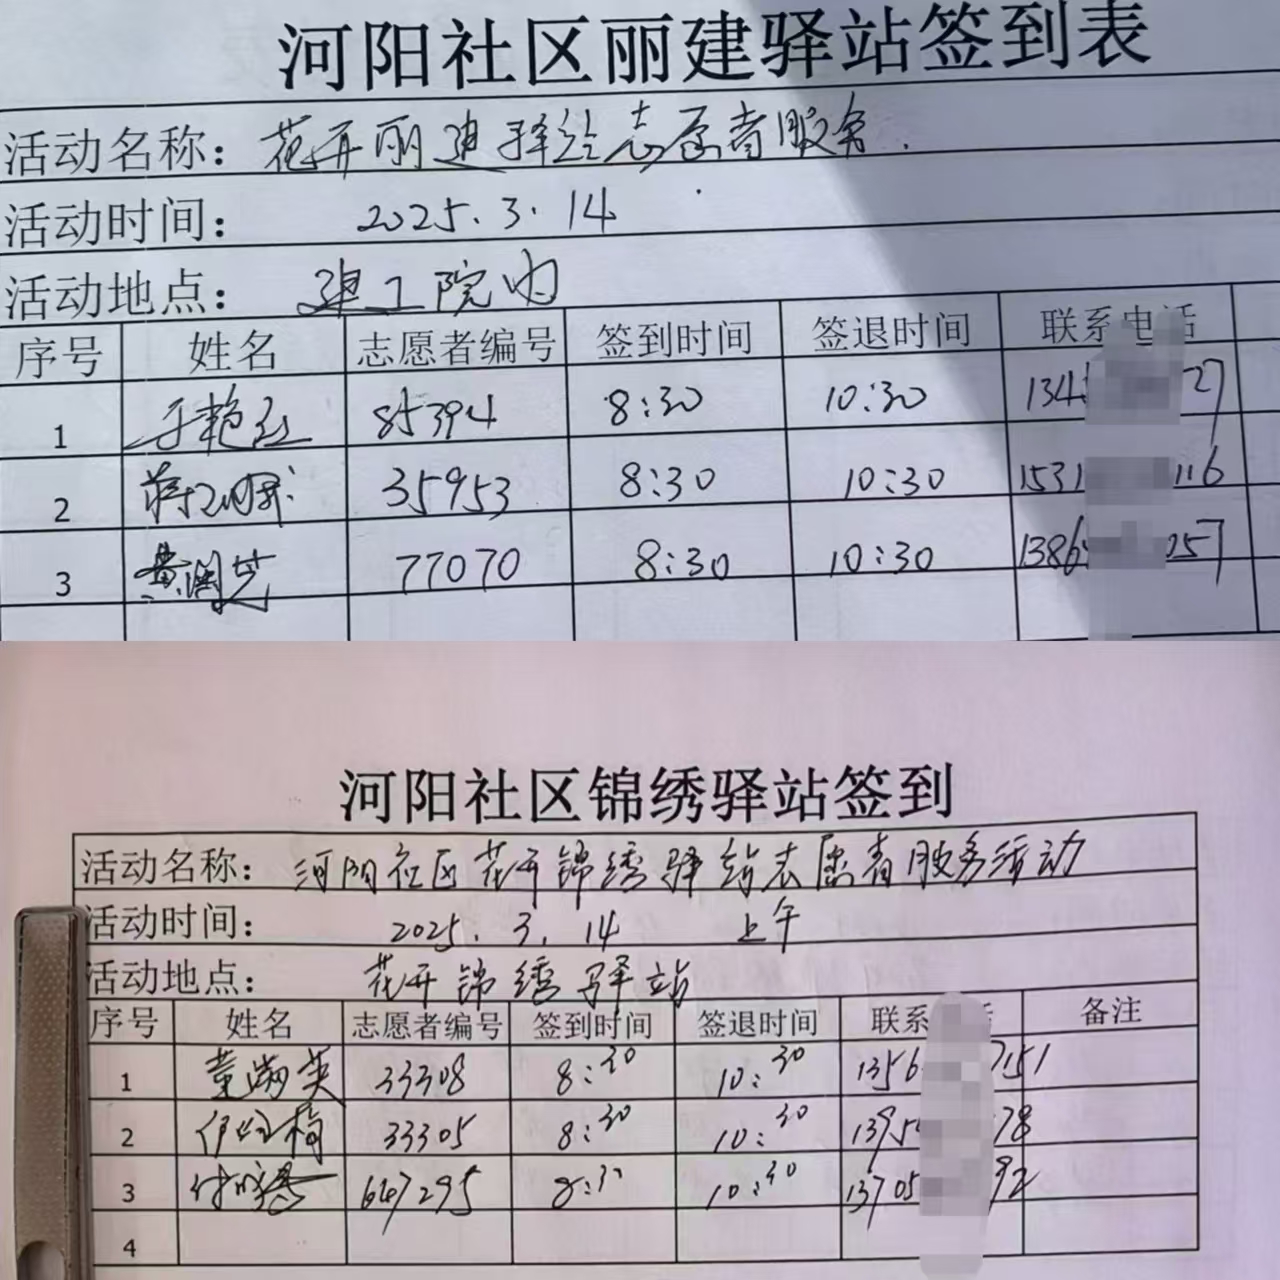 河阳社区丽建驿站签到表
活动名称：花开丽建驿站志愿者服务.
活动时间： 2025.3.14
活动地点： 建工院内
序号 姓名 志愿者编号 签到时间 签退时间 联系电话
1 于艳红 85394 8:30 10:30 134 27
2 35953 8:30 10:30 1531 116
3 黄润芝 77070 8:30 10:30 1386 257
河阳社区锦绣驿站签到
活动名称：河阳社区花开锦绣驿站志愿者服务活动
活动时间： 2025.3.14 上午
活动地点： 花开锦绣驿站
序号 姓名 志愿者编号 签到时间 签退时间 联系 备注
1 董满英 33308 8:30 10:30 1356 7151
2 33305 8:30 10:30 1395 78
3 667295 8:30 10:30 13705 92
4